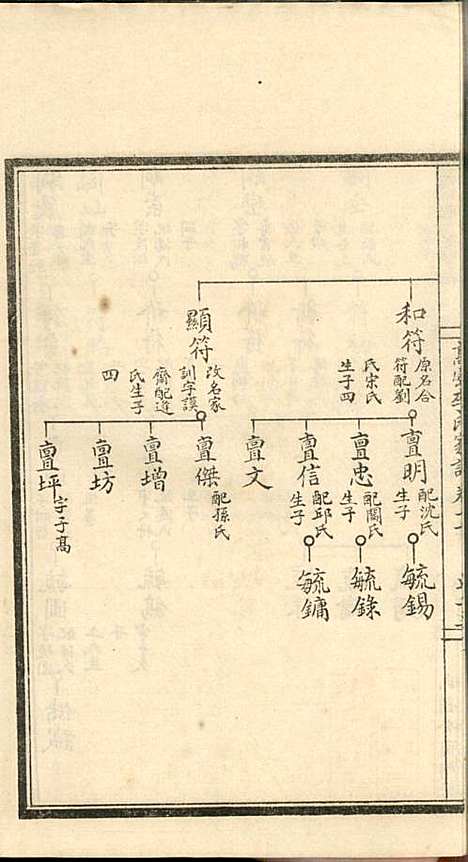 和符
原名合
符配劉
氏宋氏
生子四
亶明
配沈氏
生子
毓錫
亶忠
配關氏
生子
毓錄
亶信
配邱氏
生子
毓鏞
亶文
顯符
改名家
訓字謨
齋配連
氏生子
四
亶傑
配孫氏
亶增
亶坊
亶坪
字子高